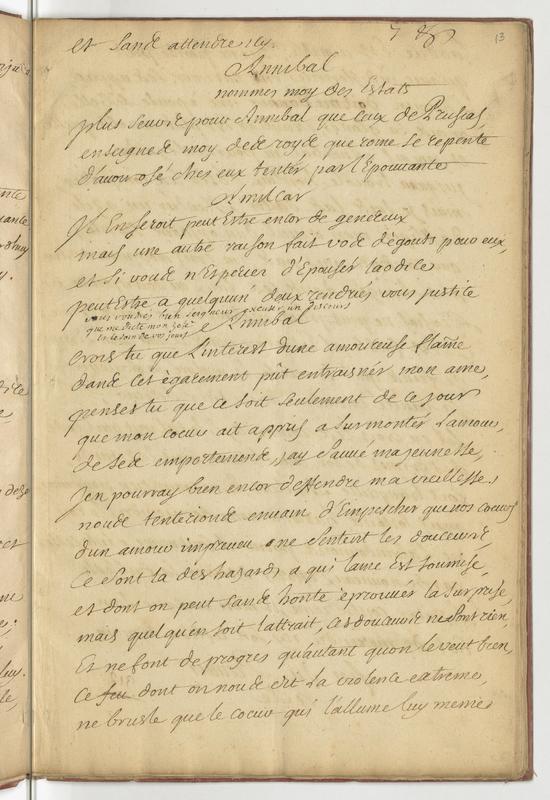 13
et sans attendre icy.
Annibal
nommes moy des Estats
plus seurs pour Annibal que ceux de Prusias,
enseignes moy des roys que rome se repente
d'avoir osé ches eux tenter par l'Epouuante
Amilcar
Il En seroit peut Estre encor de genereux
mais une autre raison fait vos dégouts pour eux,
et si vous n'Esperiés d'Epouser laodice
peut Estre a quelqu'un d'eux rendriés vous justice
vous voudrés bien seigneur excuser un discours
que me dicte mon zele
et le soin de vos jours
Annibal
crois tu que l'interest d'une amoureuse flame
dans cet égarement pût entraisner mon ame,
penses tu que ce soit seulement de ce jour
que mon coeur ait appris a surmonter l'amour,
de ses emportemens, j'ay sauué ma jeunesse,
j'en pourray bien encor deffendre ma vieillesse.
nous tenterions en vain d'Empescher que nos coeurs
d'un amour impreueu ne sentent les douceurs,
Ce sont la des hazards a qui l'ame Est soumise,
et dont on peut sans honte eprouuer la surprise,
mais quelqu'en soit l'attrait, ces douceurs ne sont rien,
Et ne font de progres qu'autant qu'on le veut bien,
ce feu dont on nous dit la violence extreme,
ne brusle que le coeur qui l'allume luy mesme